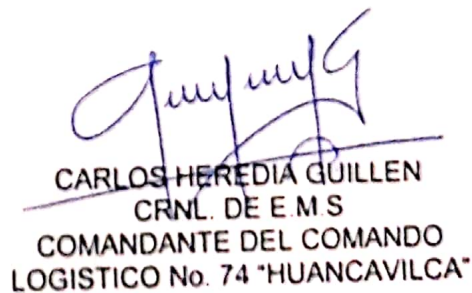 CARLOS HEREDIA GUILLEN
CRNL. DE E.M.S
COMANDANTE DEL COMANDO
LOGISTICO No. 74 "HUANCAVILCA"